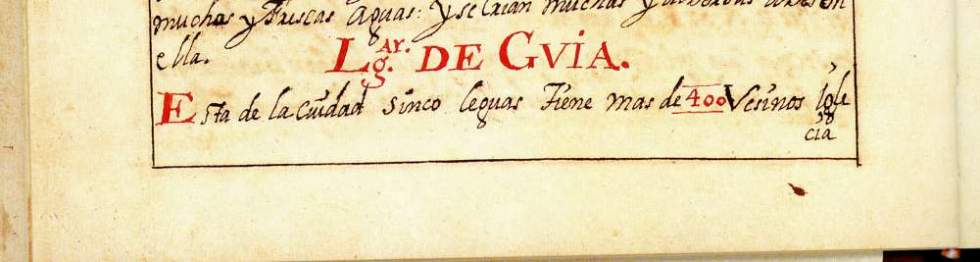 muchas y frescas Aguas: Y se crian muchas y
ella.
Lgar. DE GVIA.
Esta de la Ciudad Sinco leguas Tiene mas de 400 Vesinos Igle
cia